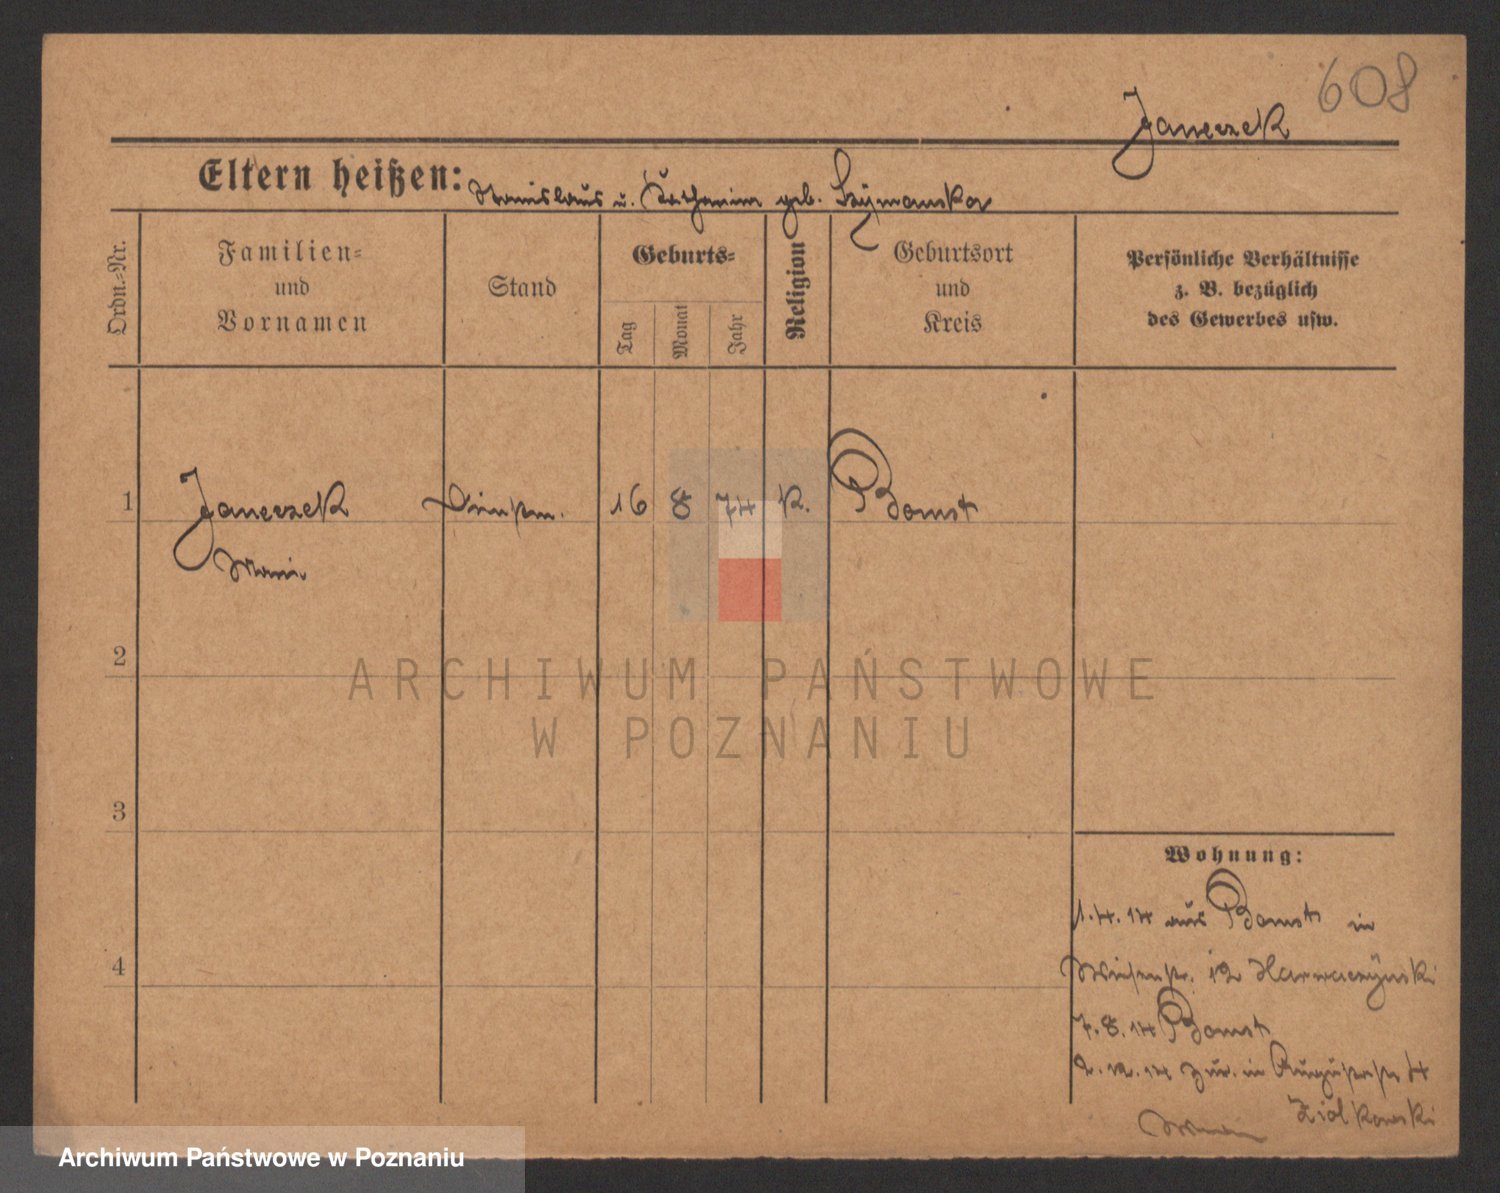 608
Janeczek
Eltern heißen: Stanislaus u. Katharina geb. Szymanska
Ordn.-Nr.
Familien-
und
Vornamen
Stand
Geburts-
Tag
Monat
Jahr
Religion
Geburtsort
und
Kreis
Persönliche Verhältnisse
z. B. bezüglich
des Gewerbes usw.
1 Janeczek Dienstm. 16 8 74 K. Bomst
Marie
2
ARCHIWUM PAŃSTWOWE
W POZNANIU
3
Wohnung:
1.4.14 aus Bomst in
4
Wiesenstr. 12
7.8.14 Bomst
2.12.14 zur. in Augustastr 4
Ziolkowski
Archiwum Państwowe w Poznaniu